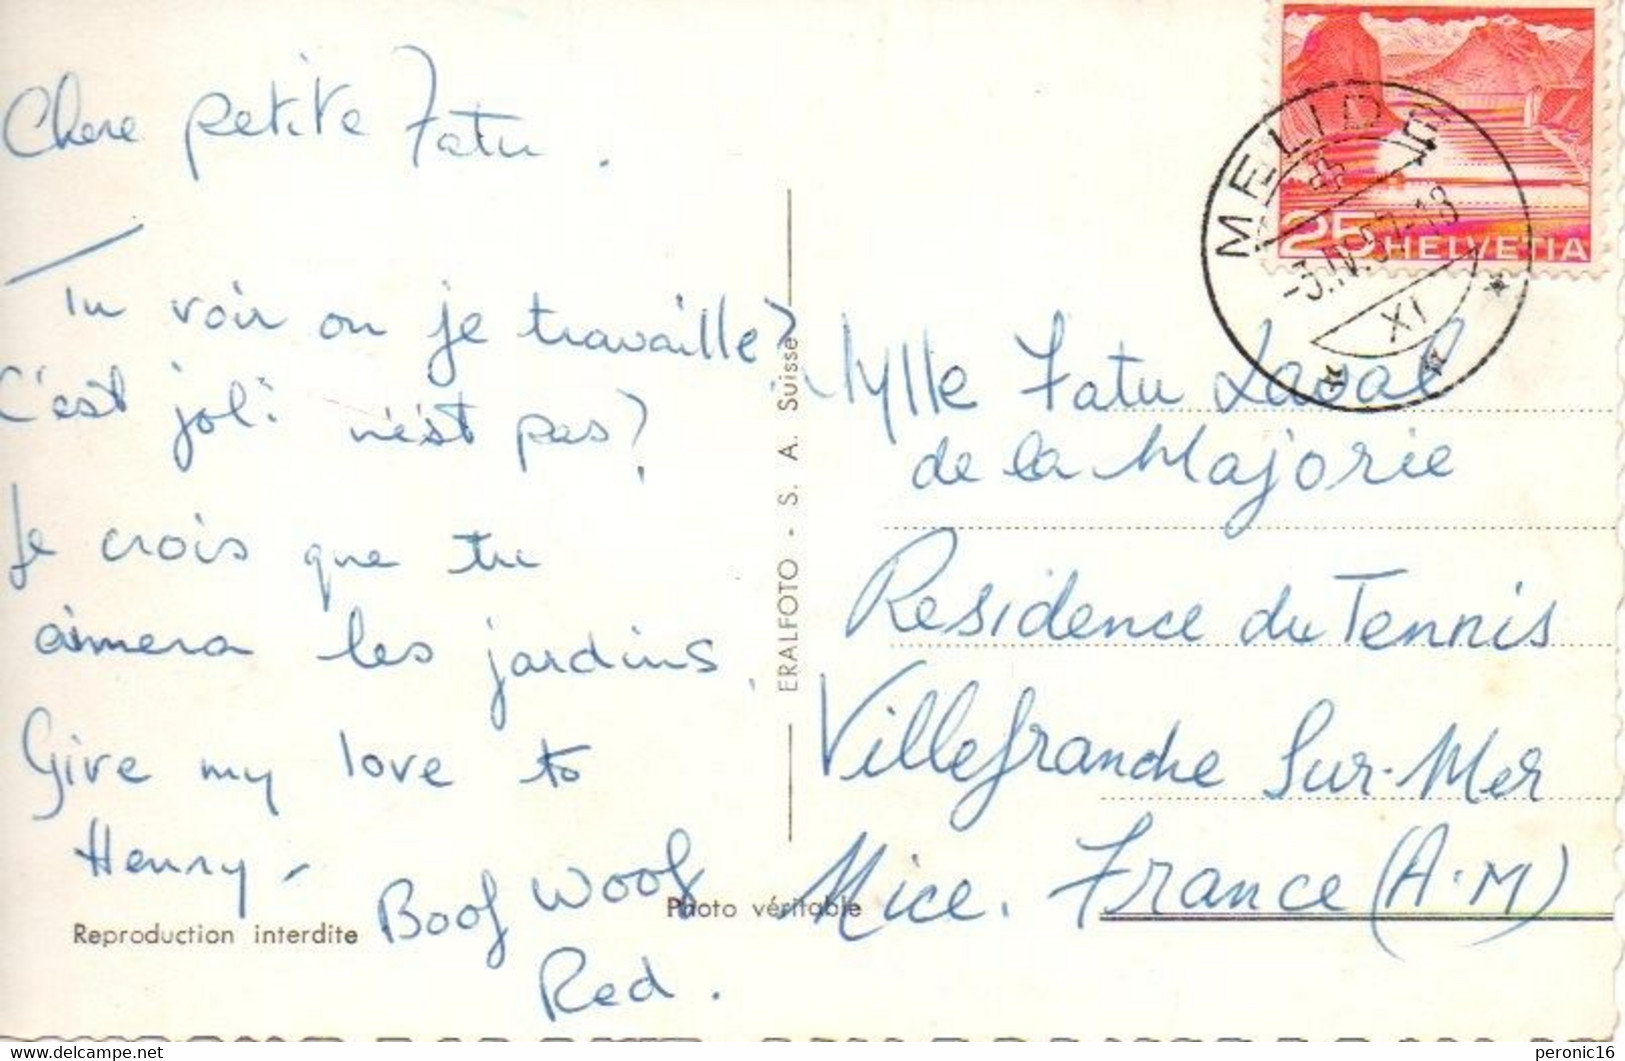 Chere petite Fatu.
Tu voir ou je travaille?
C'est joli n'est pas?
Je crois que tu
aimera les jardins.
Give my love to
Henry -
Boof Woof
Red.
Reproduction interdite
Photo véritable
ERALFOTO - S. A. Suisse
25 HELVETIA
MELIDE
-3.IV.57-18
XI
Mylle Fatu Laval
de la Majorie
Residence du Tennis
Villefranche Sur-Mer
Nice. France (A.M)
delcampe.net
peronic16